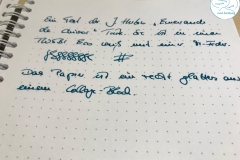 Ein Test der J. Herbin „Emeraude
de Chivor" Tinte. Sie ist in einer
TWSBI Eco weiß mit einer M-Feder.
#
Das Papier ist ein recht glattes aus
einem College-Block.